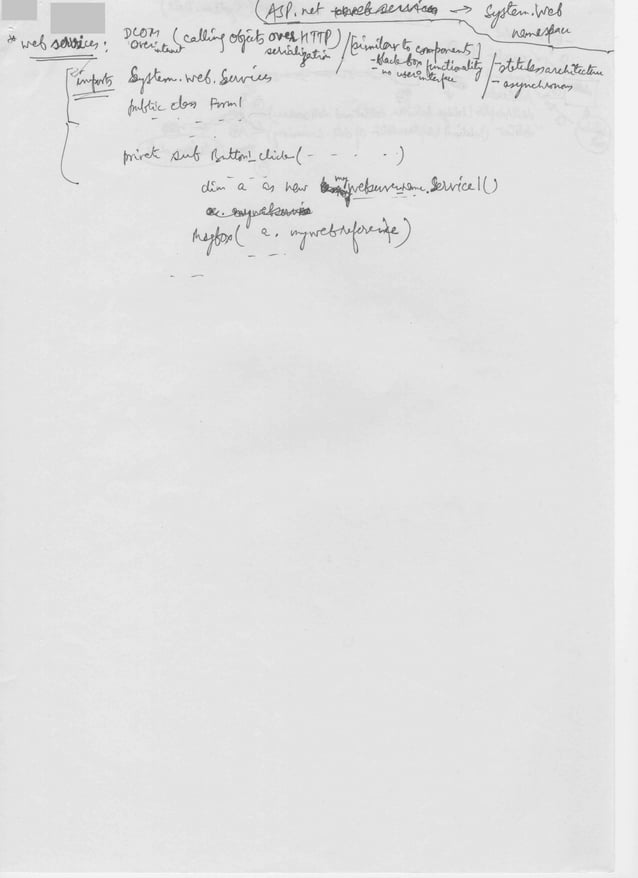 (ASP.net web services → System.Web
namespace
* web services: DCOM (calling objects over HTTP) / [similar to components]
over internet serialization
- black box functionality
no user interface
/ - stateless architecture
- asynchronous
imports System.Web.Services
public class Form1
private sub Button1_click( - - - - )
dim a as new my .Service1()
Msgbox( a. mywebreference)